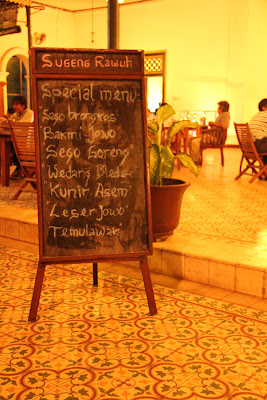 SUGENG RAWUH
Special menu:
Sego brongkos
Bakmi Jowo
Sego Goreng
"Wedang Bledek"
"Kunir Asem"
"Leser Jowo"
Temulawak